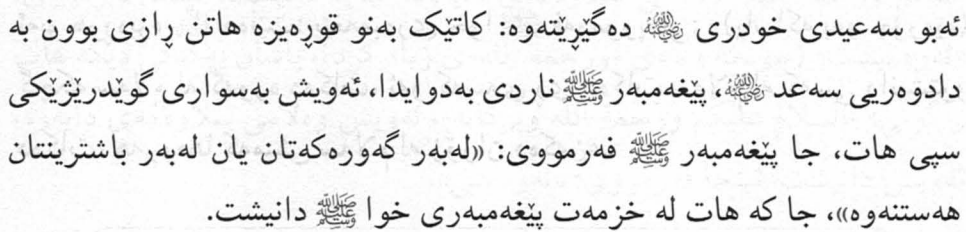 ئەبو سەعیدی خودری ﵁ دەگێڕێتەوە: کاتێک بەنو قوڕەیزە هاتن ڕازی بوون بە
دادوەریی سەعد ﵁، پێغەمبەر ﷺ ناردی بەدوایدا، ئەویش بەسواری گوێدرێژێکی
سپی هات، جا پێغەمبەر ﷺ فەرمووی: «لەبەر گەورەکەتان یان لەبەر باشترینتان
هەستنەوە»، جا کە هات لە خزمەت پێغەمبەری خوا ﷺ دانیشت.